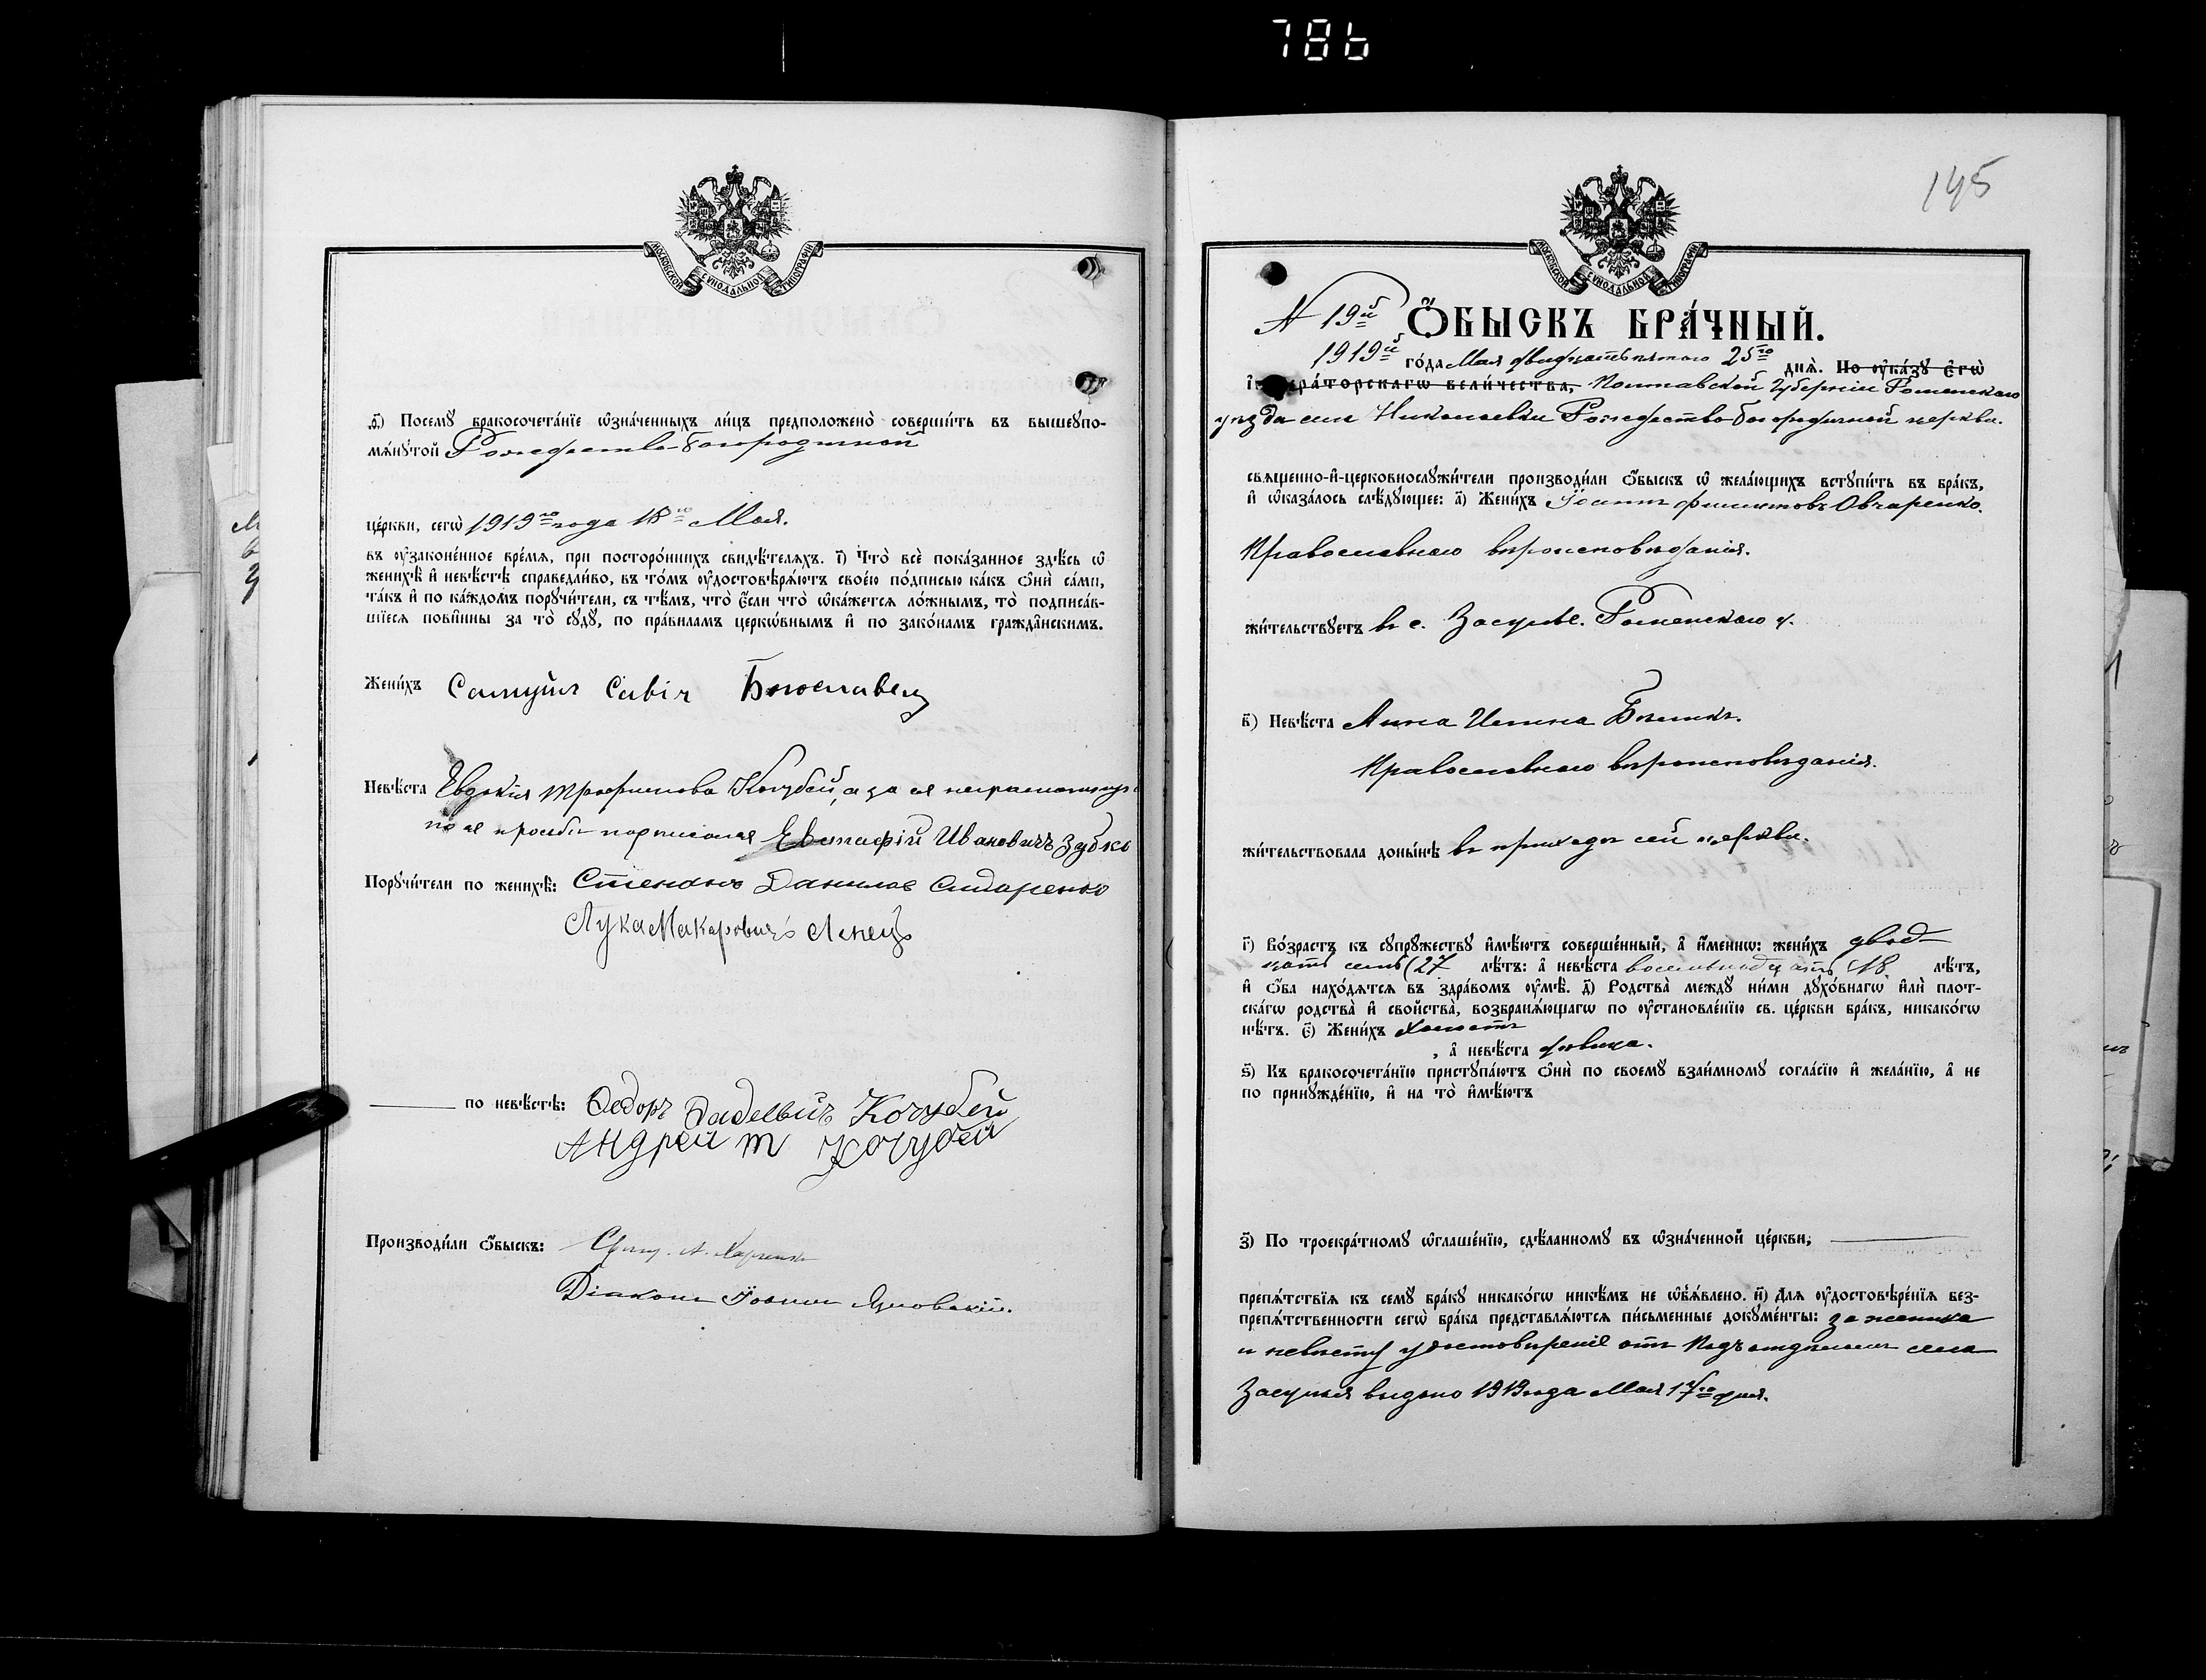 786
МОСКОВСКОЙ СУНОДАЛЬНОЙ ТИПОГРАФІИ
д҃) Посемꙋ̀ бракосочета́нїе ѡ҆зна́ченныхъ ли́цъ предположено̀ соверши́ть въ вышеꙋпо-
мѧ́нꙋтой Рождество-Богородичной
це́ркви, сегѡ̀ 1919го года 18го Мая.
въ ᲂу҆зако́ненное вре́мѧ, при посторо́ннихъ свидѣ́телѧхъ. і҃) Что̀ всѐ пока́занное здѣ́сь ѡ҆
женихѣ̀ и҆ невѣ́стѣ справедли́во, въ то́мъ ᲂу҆достовѣрѧ́ютъ свое́ю по́дписью ка́къ ѻ҆нѝ са́ми,
та́къ и҆ по ка́ждомъ порꙋчи́тели, съ тѣ́мъ, что̀ є҆́сли что̀ ѡ҆ка́жетсѧ ло́жнымъ, то̀ подписа́в-
шїесѧ пови́нны за то̀ сꙋдꙋ̀, по пра́виламъ церкѡ́внымъ и҆ по зако́намъ гражда̑нскимъ.
Жени́хъ Самуилъ Савіч
Невѣ́ста Евдокія Трофимова Кочубей, а за ея неграмотную
по ея просьбѣ подписался Евстафій Ивановичъ Зубко
Порꙋчи́тели по женихѣ̀: Степанъ Данилов Сидоренко
Лука Макаровичъ
по невѣ́стѣ: Федоръ Кочубей
Андрей т Кочубей
Производи́ли ѻ҆́быскъ: Свящ. А. Харченко
Діаконъ Іоаннъ
145
МОСКОВСКОЙ СУНОДАЛЬНОЙ ТИПОГРАФІИ
N 19й ѺБЫСКЪ БРА́ЧНЫЙ.
1919й го́да Мая двадцать пятого 25го днѧ̀. По ᲂу҆ка́зꙋ є҆гѡ̀
и҆мпера́торскагѡ вели́чества, Полтавской Губерніи Роменскаго
уѣзда села Николаевки Рождество-Богородичной церкви.
свѧще́нно-и҆-церковнослꙋжи́тели производи́ли ѻ҆́быскъ ѡ҆ жела́ющихъ встꙋпи́ть въ бра́къ,
и҆ ѡ҆каза́лось слѣ́дꙋющее: а҃) Жени́хъ Іоаннъ Филиповъ Овчаренко.
Православнаго вѣроисповѣданія.
жи́тельствꙋетъ въ с. Засульѣ. Роменскаго у.
в҃) Невѣ́ста Анна
Православнаго вѣроисповѣданія.
жи́тельствовала доны́нѣ въ приходѣ сей церкви.
г҃) Во́зрастъ къ сꙋпрꙋ́жествꙋ и҆мѣ́ютъ соверше́нный, а҆ и҆́меннѡ: жени́хъ двад-
цать семь (27 лѣ́тъ: а҆ невѣ́ста восемнадцать (18 лѣ́тъ,
и҆ ѻ҆́ба нахо́дѧтсѧ въ здра́вомъ ᲂу҆мѣ̀. д҃) Родства̀ междꙋ̀ ни́ми дꙋхо́внагѡ и҆лѝ пло́т-
скагѡ родства̀ и҆ сво́йства, возбранѧ́ющагѡ по ᲂу҆становле́нїю св. це́ркви бра́къ, никако́гѡ
нѣ́тъ. є҃) Жени́хъ холостъ
, а҆ невѣ́ста дѣвица.
ѕ҃) Къ бракосочета́нїю пристꙋпа́ютъ ѻ҆нѝ по своемꙋ̀ взаи́мномꙋ согла́сїю и҆ жела́нїю, а҆ не
по принꙋжде́нїю, и҆ на то̀ и҆мѣ́ютъ
з҃) По троекра́тномꙋ ѡ҆глаше́нїю, сдѣ́ланномꙋ въ ѡ҆зна́ченной це́ркви,
препѧ́тствїѧ къ семꙋ̀ бра́кꙋ никако́гѡ никѣ́мъ не ѡ҆б̾ѧ́влено. и҃) Длѧ ᲂу҆достовѣре́нїѧ без-
препѧ́тственности сегѡ̀ бра́ка представлѧ́ютсѧ пи́сьменные докꙋме́нты: за жениха
и невѣсту удостовѣреніе отъ села
Засулья выдано 1919 года Мая 17го дня.